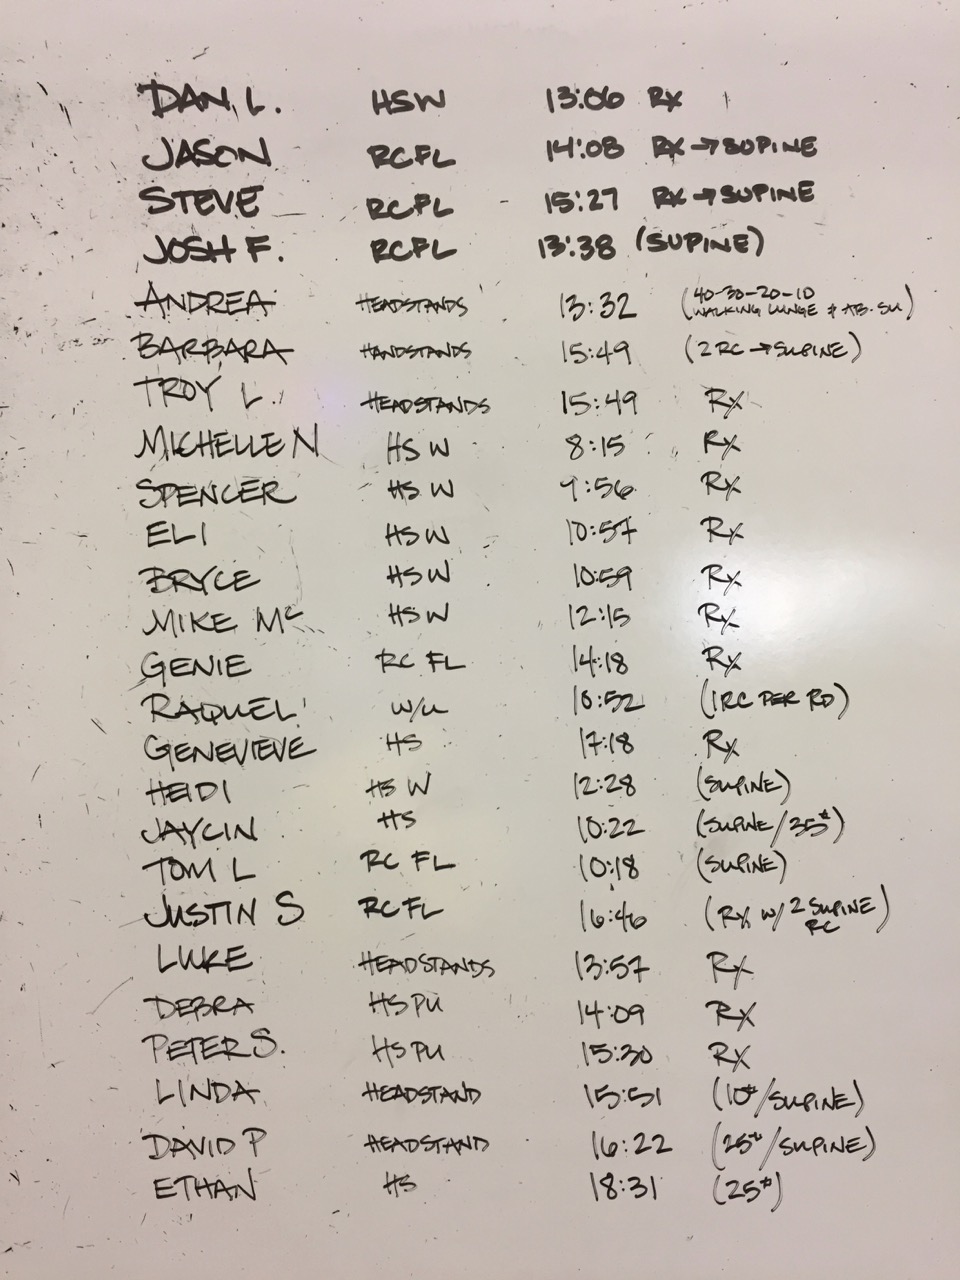 DAN L. HSW 13:06 RX
JASON RCFL 14:08 RX → SUPINE
STEVE RCFL 15:27 RX → SUPINE
JOSH F. RCFL 13:38 (SUPINE)
ANDREA HEADSTANDS 13:32 (40-30-20-10 WALKING LUNGE & AB. SU)
BARBARA HANDSTANDS 15:49 (2 RC → SUPINE)
TROY L. HEADSTANDS 15:49 RX
MICHELLE N HS W 8:15 RX
SPENCER HS W 9:56 RX
ELI HS W 10:57 RX
BRYCE HS W 10:59 RX
MIKE Mc HS W 12:15 RX
GENIE RC FL 14:18 RX
RAQUEL W/U 10:52 (1 RC PER RD)
GENEVIEVE HS 17:18 RX
HEIDI HS W 12:28 (SUPINE)
JAYCIN HS 10:22 (SUPINE/35#)
TOM L RC FL 10:18 (SUPINE)
JUSTIN S RC FL 16:46 (RX W/ 2 SUPINE RC)
LUKE HEADSTANDS 13:57 RX
DEBRA HSPU 14:09 RX
PETER S. HSPU 15:30 RX
LINDA HEADSTAND 15:51 (10#/SUPINE)
DAVID P HEADSTAND 16:22 (25#/SUPINE)
ETHAN HS 18:31 (25#)